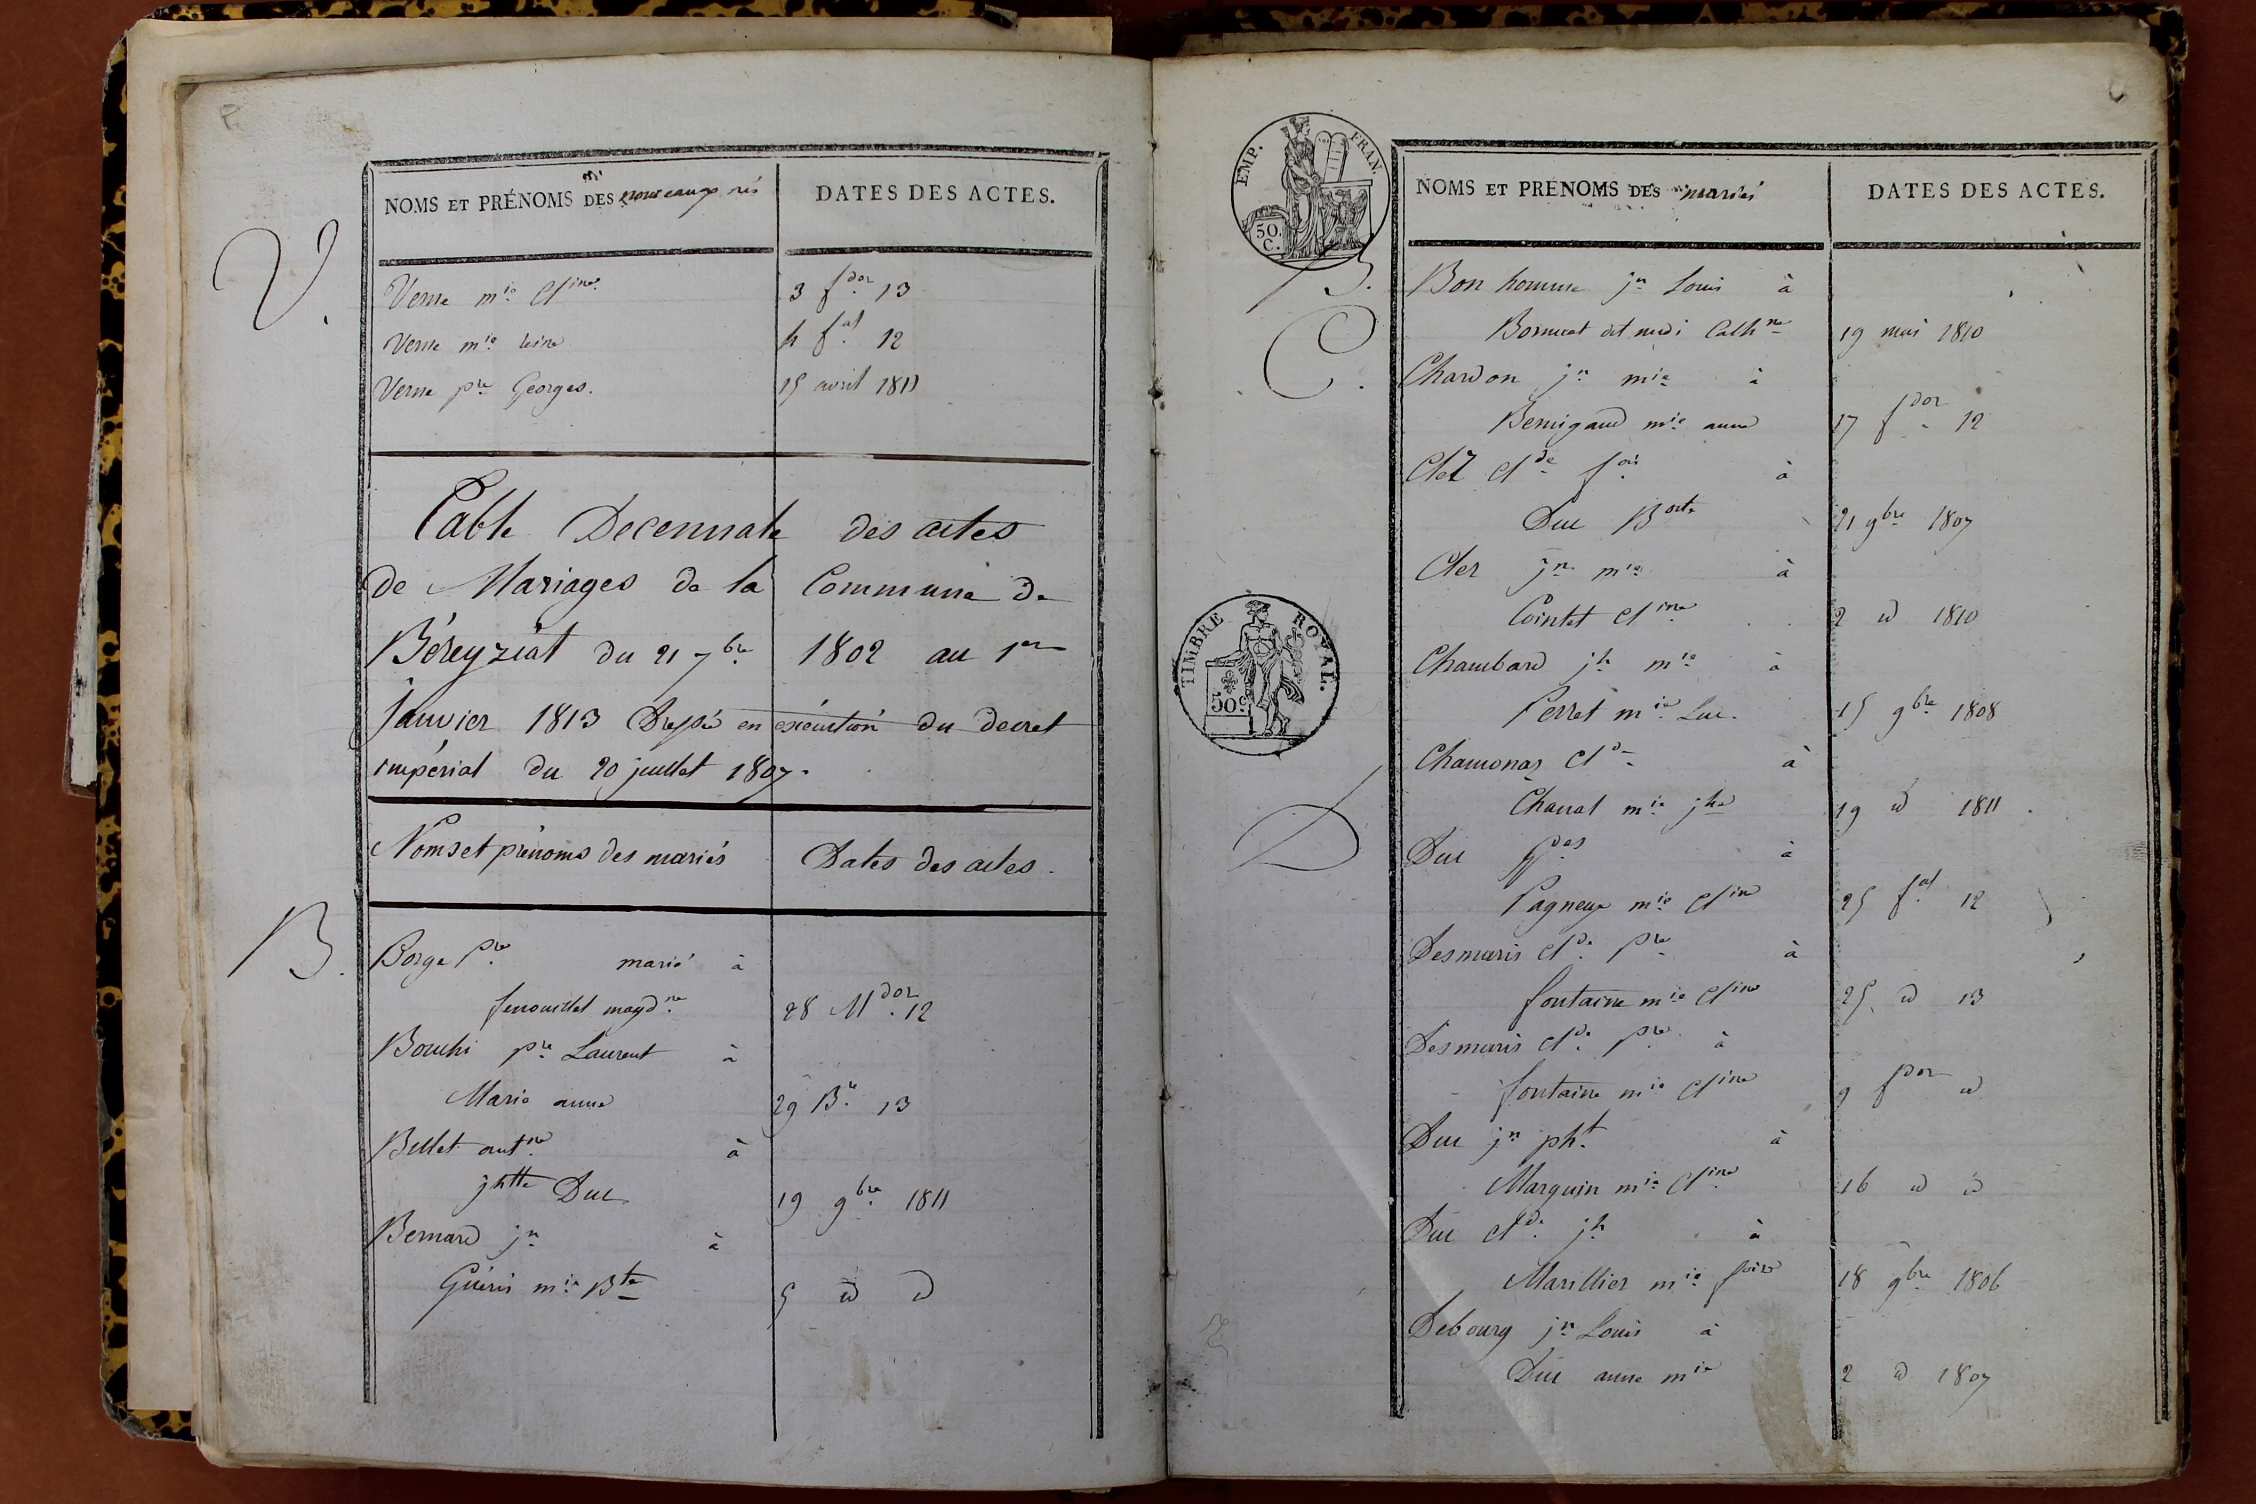 NOMS ET PRÉNOMS DES nouveaux nés
DATES DES ACTES.
V.
Verne mie Cline 3 fdor 13
Verne mie 4 fal 12
Verne pre Georges. 15 avril 1811
Table Decennale des actes
de Mariages de la Commune de
Béreyziat du 21 7bre 1802 au 1er
Janvier 1813 Dressé en exécution du decret
impérial du 20 juillet 1807.
Noms et prénoms des mariés Dates des actes.
B.
Borge pre marié à
fenouillet magdne 28 Mdor 12
Bouchi pre Laurent à
Marie anne 29 Bre 13
Billet antne à
jhtte Duc 19 9bre 1811
Bernard jn à
Guérin mie Bte 5 id id
EMP. FRAN.
50. C.
NOMS ET PRÉNOMS DES mariés
DATES DES ACTES.
B.
Bon homme jn Louis à
dit midi Cathne 19 mai 1810
C.
Chardon jn mie à
Bernigaud mie anne 17 fdor 12
Clet Clde fois à
Duc 21 9bre 1807
Cler jn mie à
Cointet Cline 2 id 1810
TIMBRE ROYAL.
50 c.
Chambard jh mie à
Perret mie Luc. 15 9bre 1808
Chamonaz Cld à
Charral mie jhe 19 id 1811
D
Duc à
Pagneux mie Cline 25 fal 12
Desmaris Clde pre à
fontaine mie Cline 25 id 13
Desmaris Clde pre à
fontaine mie Cline 9 fdor id
Duc jn pht à
Marguin mie Cline 16 id id
Duc Clde jh à
Marillier mie foise 18 9bre 1806
Debourg jn Louis à
Duc anne mie 2 id 1807